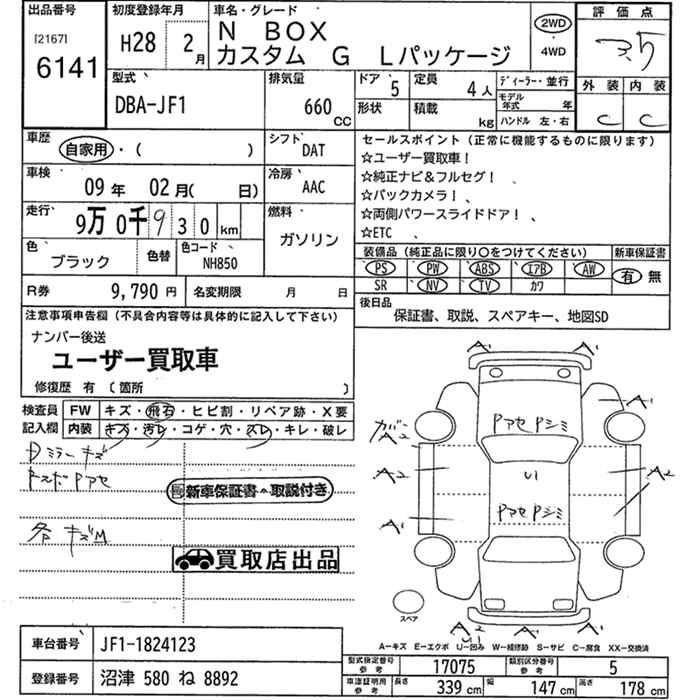 出品番号
[2167]
6141
初度登録年月
H28 2月
車名・グレード
N BOX
カスタム G Lパッケージ
2WD
・
4WD
評価点
3.5
外装 内装
C C
型式
DBA-JF1
排気量
660
CC
ドア 5
形状
定員
4人
積載
kg
ディーラー・並行
モデル年式 年
ハンドル 左・右
車歴
自家用・( )
シフト
DAT
車検
09年 02月( 日)
冷房
AAC
走行
9万0千930km
燃料
ガソリン
色
ブラック
色替
色コード
NH850
セールスポイント(正常に機能するものに限ります)
☆ユーザー買取車!
☆純正ナビ&フルセグ! 、
☆バックカメラ! 、
☆両側パワースライドドア! 、
☆ETC 、
装備品(純正品に限り○をつけてください)
PS PW ABS エアB AW
SR NV TV カワ
新車保証書
有 無
R券 9,790円
名変期限 月 日
後日品
保証書、取説、スペアキー、地図SD
注意事項申告欄(不具合内容等は具体的に記入して下さい)
ナンバー後送
ユーザー買取車
修復歴 有(箇所 )
検査員
記入欄
FW キズ・飛石・ヒビ割・リペア跡・X要
内装 キズ・汚レ・コゲ・穴・スレ・キレ・破レ
Dミラーキズ
新車保証書・取説付き
各キズM
買取店出品
A' A'
A'
A2
A2
A2
A'
U1
A'
A'
スペア
A-キズ E-エクボ U-凹み W-補修跡 S-サビ C-腐食 XX-交換済
車台番号 JF1-1824123
登録番号 沼津 580 ね 8892
型式指定番号
参考
17075
類別区分番号
参考
5
車検証明用
参考
長さ 339cm 幅 147cm 高さ 178cm